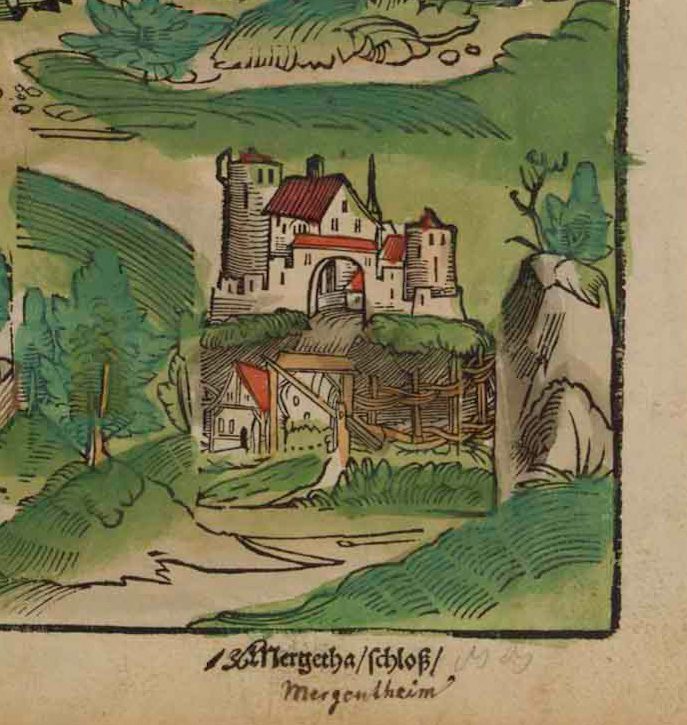 136 Mergetha/schloß/
Mergentheim